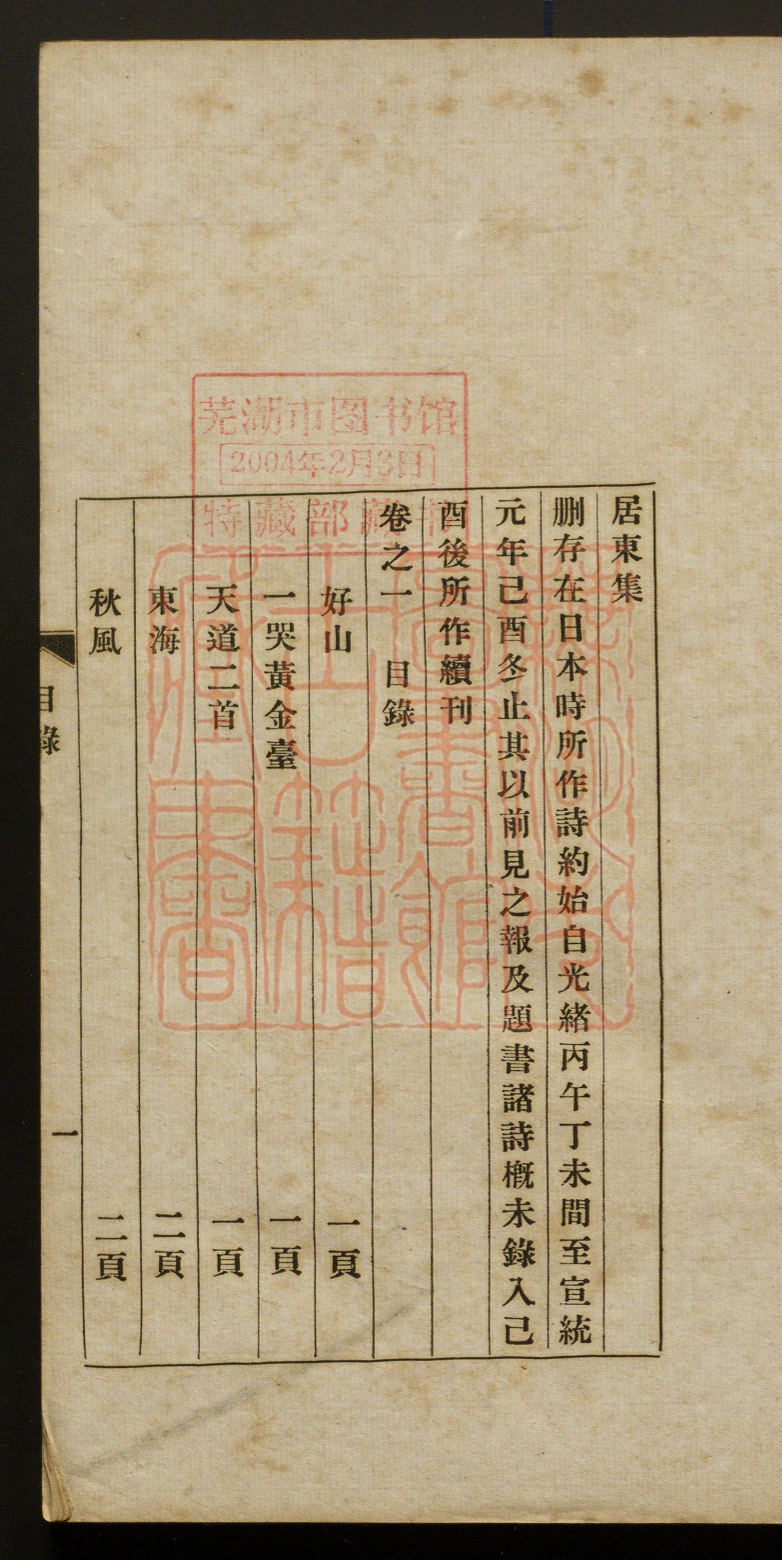 居東集
刪存在日本時所作詩約始自光緒丙午丁未間至宣統
元年己酉冬止其以前見之報及題書諸詩概未錄入己
酉後所作續刊
卷之一 目錄
好山 一頁
一哭黃金臺 一頁
天道二首 一頁
東海 二頁
秋風 二頁
目錄
一
芜湖市图书馆
2004年2月3日
特藏部藏书